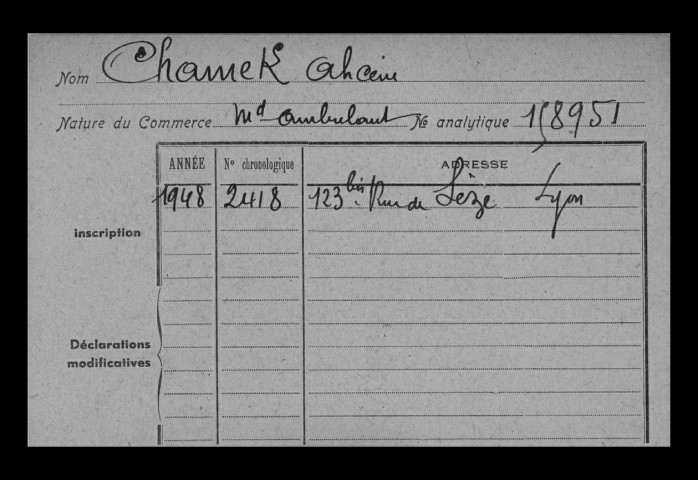 Nom Chamek ahcene
Nature du Commerce Md ambulant No analytique 158951
ANNÉE No chronologique ADRESSE
1948 2418 123 bis Rue de Sèze Lyon
inscription
Déclarations
modificatives